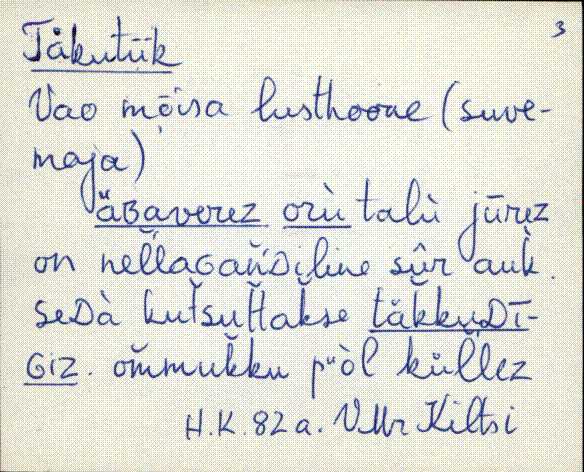 3
Tåkutiik
Vao mõisa lusthoone (suve-
maja)
äʙaverez orù talù jūrez
on nel̆lagañDiline sûr auk.
seDà kut̆sut̆takse tăk̆kuDī-
Giz. om̆muk̆ku pᵘòl kül̆lez
H.K. 82 a. VMr Kiltsi